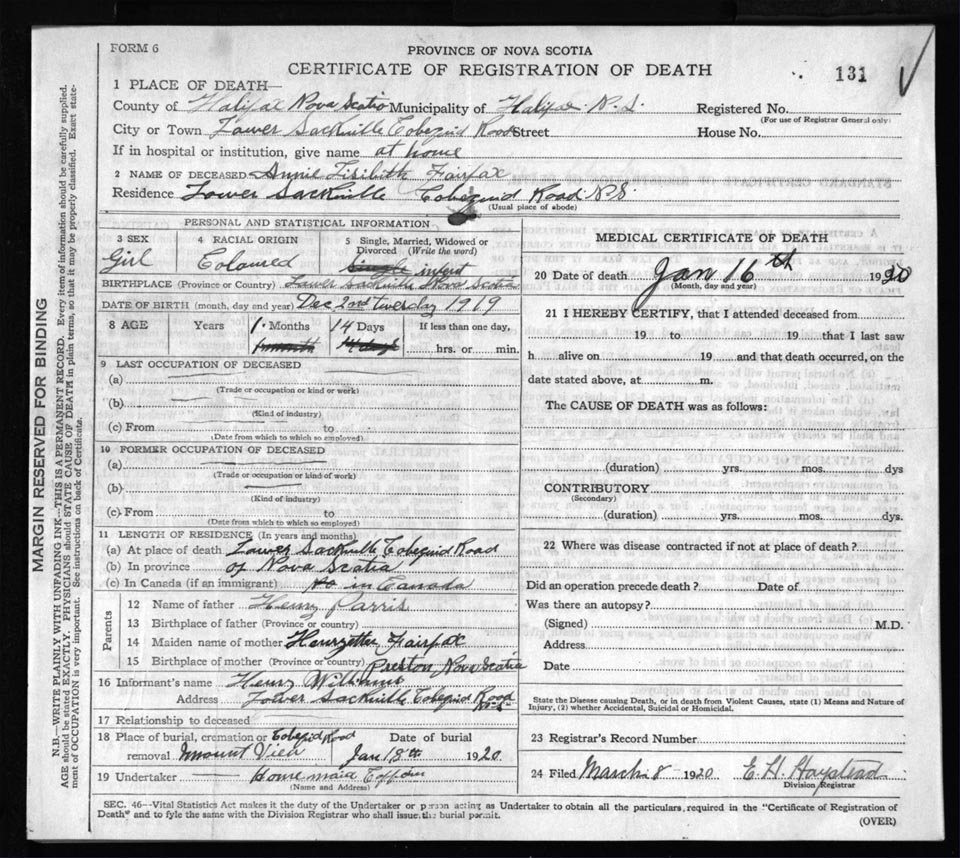 FORM 6
PROVINCE OF NOVA SCOTIA
CERTIFICATE OF REGISTRATION OF DEATH
131
1 PLACE OF DEATH—
County of Halifax Nova Scotia Municipality of Halifax N.S. Registered No.
(For use of Registrar General only)
City or Town Lower Sackville Cobequid Road Street House No.
If in hospital or institution, give name at home
2 NAME OF DECEASED Annie Fairfax
Residence Lower Sackville Cobequid Road N.S
(Usual place of abode)
PERSONAL AND STATISTICAL INFORMATION
3 SEX
Girl
4 RACIAL ORIGIN
Coloured
5 Single, Married, Widowed or Divorced (Write the word)
Single infent
BIRTHPLACE (Province or Country) Lower Sackville Nova Scotia
DATE OF BIRTH (month, day and year) Dec 2nd tuesday 1919
8 AGE Years 1. Months 14 Days If less than one day,
1 month 14 days hrs. or min.
9 LAST OCCUPATION OF DECEASED
(a)
(Trade or occupation or kind or work)
(b)
(Kind of industry)
(c) From to
(Date from which to which so employed)
10 FORMER OCCUPATION OF DECEASED
(a)
(Trade or occupation or kind of work)
(b)
(Kind of industry)
(c) From to
(Date from which to which so employed)
11 LENGTH OF RESIDENCE (In years and months)
(a) At place of death Lower Sackville Cobequid Road
(b) In province of Nova Scotia
(c) In Canada (if an immigrant) in Canada
Parents
12 Name of father Henry Parris
13 Birthplace of father (Province or country)
14 Maiden name of mother Henrzetta Fairfax
15 Birthplace of mother (Province or country) Preston Nova Scotia
16 Informant's name Henry Williams
Address Lower Sackville Cobequid Road N.S.
17 Relationship to deceased
18 Place of burial, cremation or removal Cobeqid Road Mount View
Date of burial Jan 18th 1920
19 Undertaker Home maid Coffin
(Name and Address)
MEDICAL CERTIFICATE OF DEATH
20 Date of death Jan 16th 1920
(Month, day and year)
21 I HEREBY CERTIFY, that I attended deceased from
19 to 19 that I last saw
h alive on 19 and that death occurred, on the
date stated above, at m.
The CAUSE OF DEATH was as follows:
(duration) yrs. mos. dys
CONTRIBUTORY
(Secondary)
(duration) yrs. mos. dys.
22 Where was disease contracted if not at place of death?
Did an operation precede death? Date of
Was there an autopsy?
(Signed) M.D.
Address
Date
State the Disease causing Death, or in death from Violent Causes, state (1) Means and Nature of
Injury, (2) whether Accidental, Suicidal or Homicidal.
23 Registrar's Record Number
24 Filed March 8 1920 E H Haystead
Division Registrar
SEC. 46—Vital Statistics Act makes it the duty of the Undertaker or person acting as Undertaker to obtain all the particulars, required in the "Certificate of Registration of
Death" and to fyle the same with the Division Registrar who shall issue the burial permit.
(OVER)
MARGIN RESERVED FOR BINDING
N.B.—WRITE PLAINLY WITH UNFADING INK—THIS IS A PERMANENT RECORD. Every item of information should be carefully supplied.
AGE should be stated EXACTLY. PHYSICIANS should STATE CAUSE OF DEATH in plain terms, so that it may be properly classified. Exact state-
ment of OCCUPATION is very important. See instructions on back of Certificate.